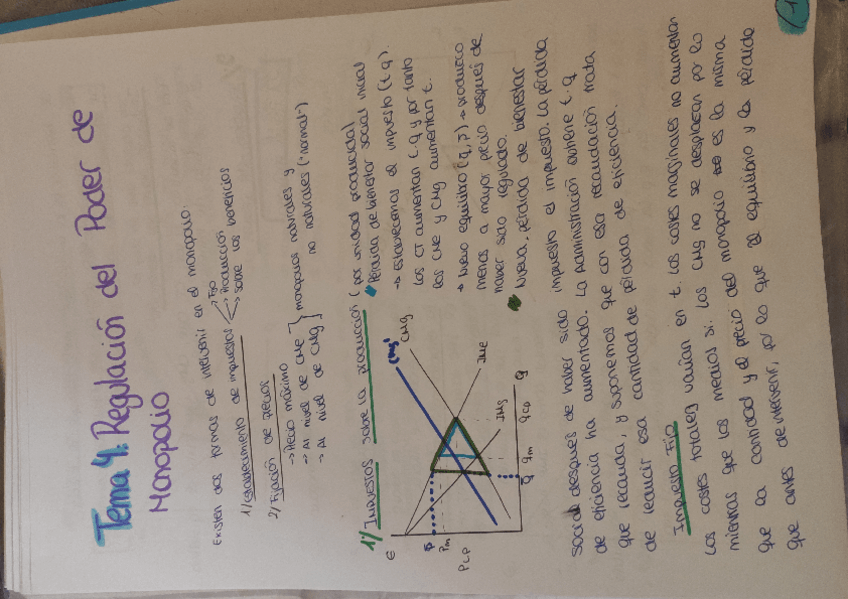 Tema 4: Regulación del Poder de
Monopolio
Existen dos formas de intervenir en el monopolio:
1/ Establecimiento de impuestos
Fijo
Producción
Sobre los beneficios
2/ Fijación de precios
→ Precio máximo
→ Al nivel de CMe
→ Al nivel de CMg
monopolios naturales y
no naturales ("normal")
1/ Impuestos sobre la producción (por unidad producida)
Pérdida de bienestar social inicial
→ Establecemos el impuesto (t.q).
los CT aumentan t.q y por tanto
los CMe y CMg aumentan t.
→ Nuevo equilibrio (q, p) → produzco
menos a mayor precio después de
haber sido regulado.
Nueva pérdida de bienestar
€
P
Pm
Pcp
CMg'
CMg
IMe
IMg
q
qm
qcp
Q
social después de haber sido impuesto el impuesto. La pérdida
de eficiencia ha aumentado. La Administración obtiene t.q
que recauda, y suponemos que con esa recaudación trata
de reducir esa cantidad de pérdida de eficiencia.
Impuesto Fijo
Los costes totales varían en t. Los costes marginales no aumentan
mientras que los medios si. Los CMg no se desplazan por lo
que la cantidad y el precio del monopolio es la misma
que antes de intervenir, por lo que el equilibrio y la pérdida
1